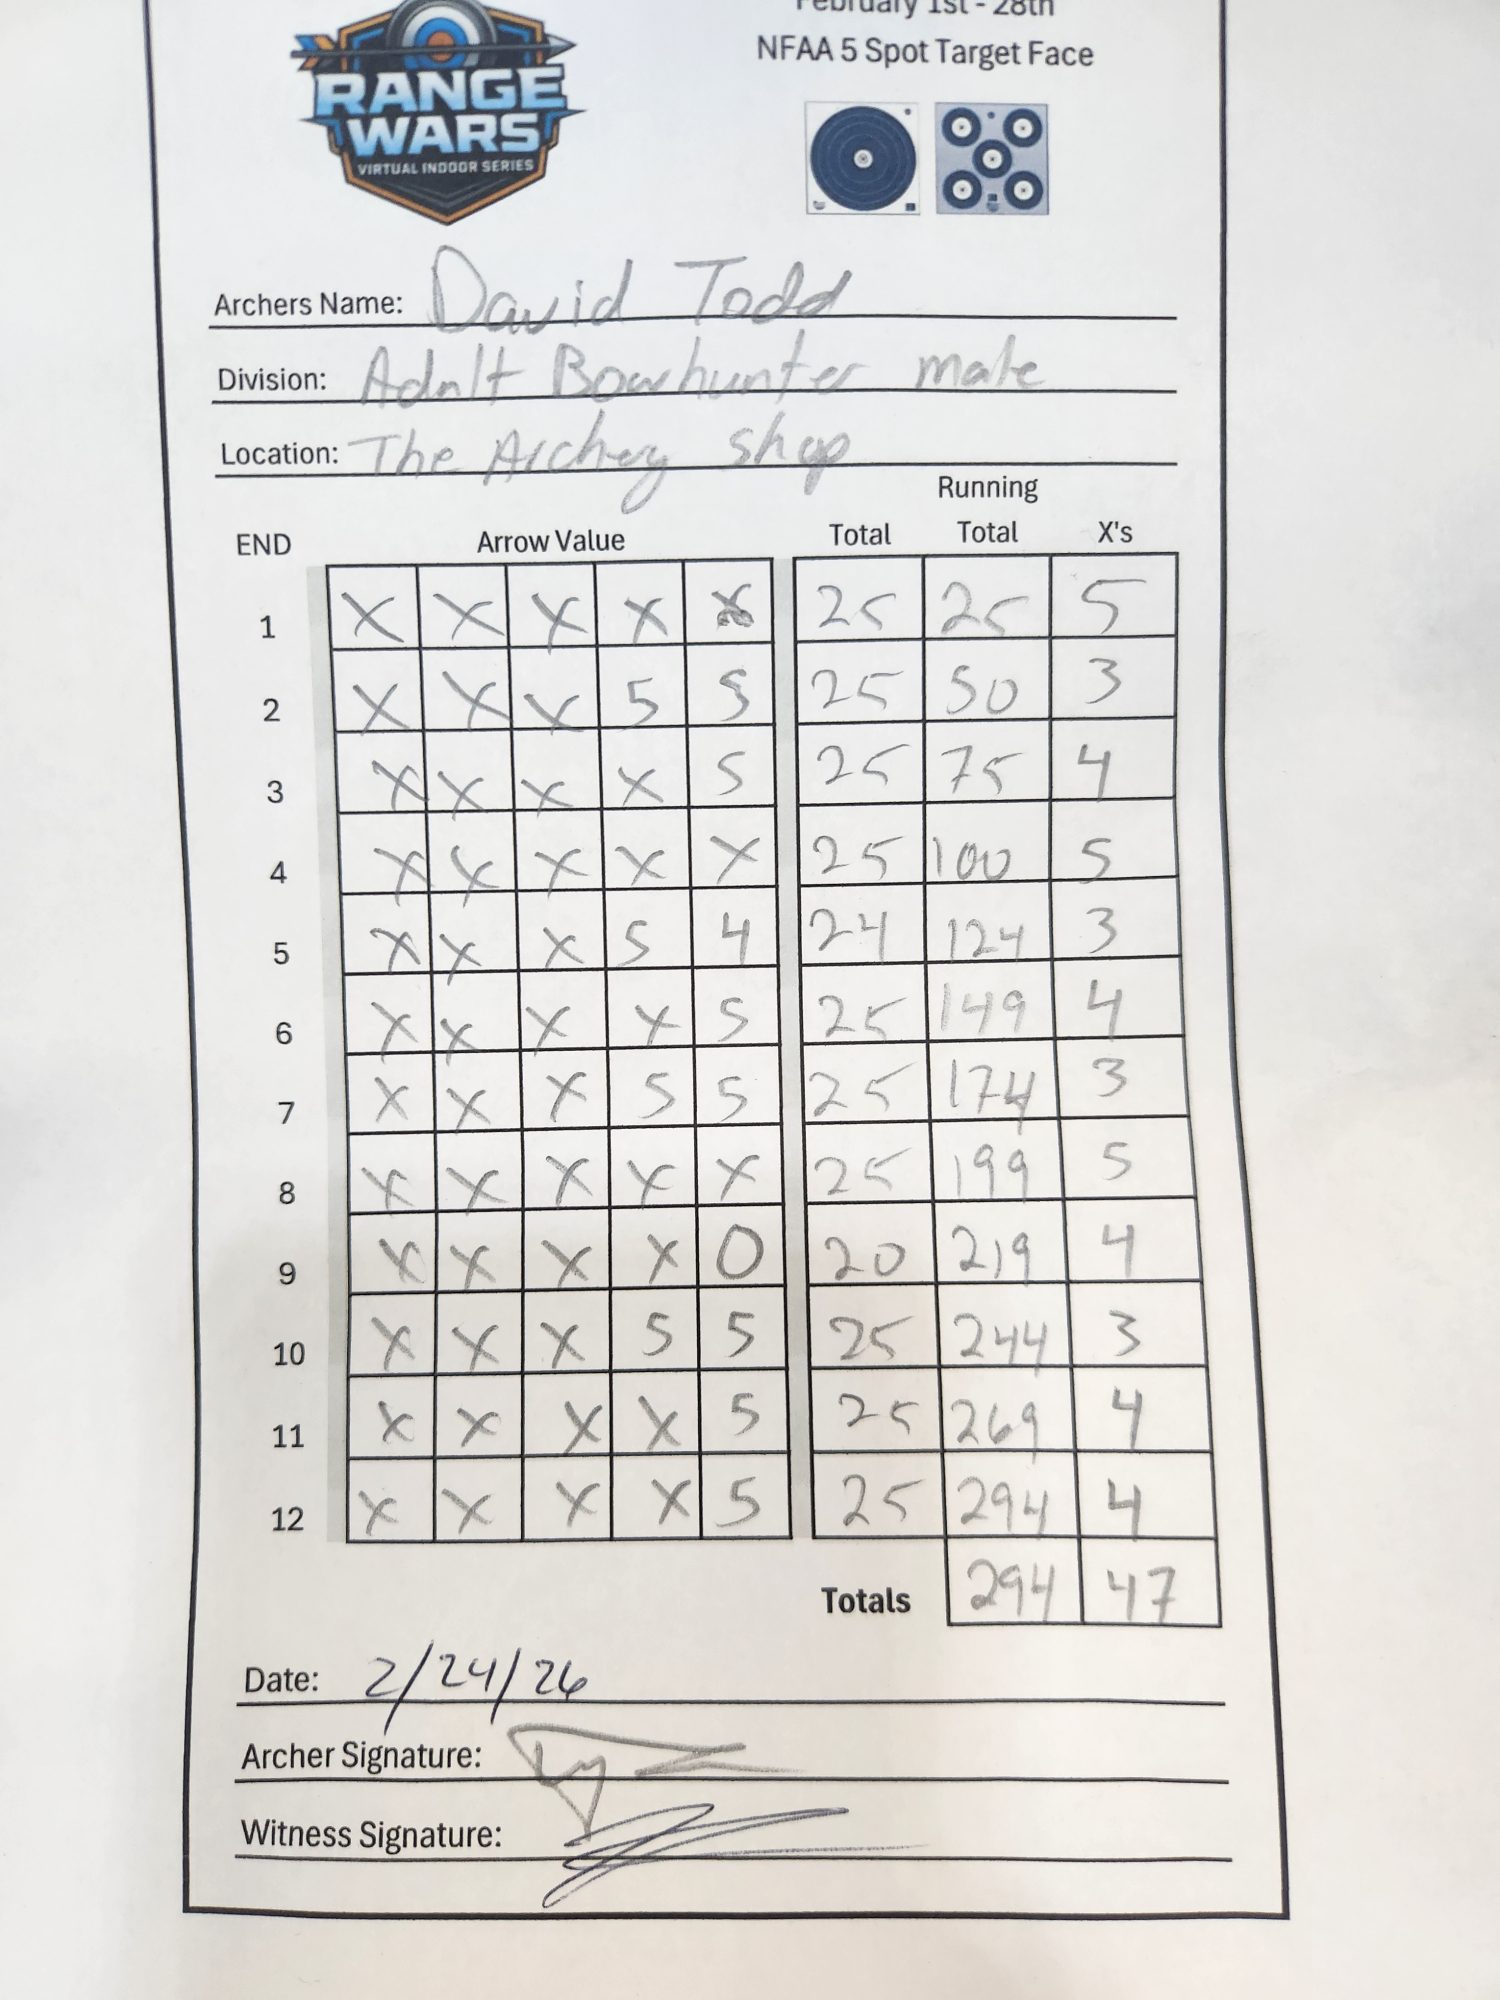 February 1st - 28th
NFAA 5 Spot Target Face
RANGE
WARS
VIRTUAL INDOOR SERIES
Archers Name: David Todd
Division: Adult Bowhunter male
Location: The Archery shop
Running
END Arrow Value Total Total X's
1 X X X X X 25 25 5
2 X X X 5 5 25 50 3
3 X X X X 5 25 75 4
4 X X X X X 25 100 5
5 X X X 5 4 24 124 3
6 X X X X 5 25 149 4
7 X X X 5 5 25 174 3
8 X X X X X 25 199 5
9 X X X X 0 20 219 4
10 X X X 5 5 25 244 3
11 X X X X 5 25 269 4
12 X X X X 5 25 294 4
Totals 294 47
Date: 2/24/26
Archer Signature:
Witness Signature: